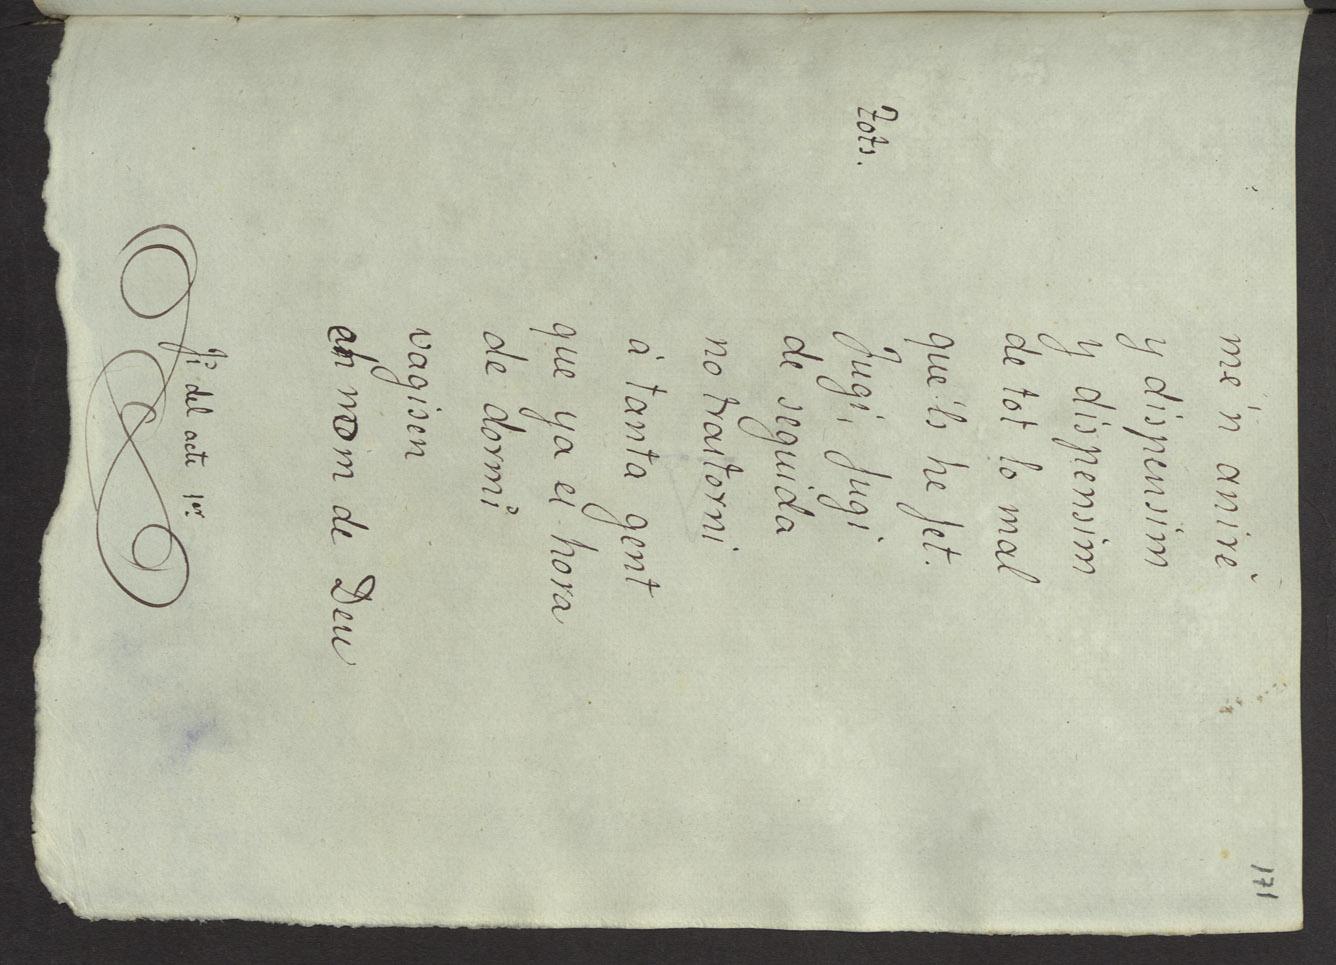 171
me'n aniré
y dispensim
y dispensim
de tot lo mal
que'ls he fet.
Tots. Fugi, fugi
de seguida
no trastorni
á tanta gent
que ya es hora
de dormí
vagisen
ah nom de Deu
Fi del acte 1er